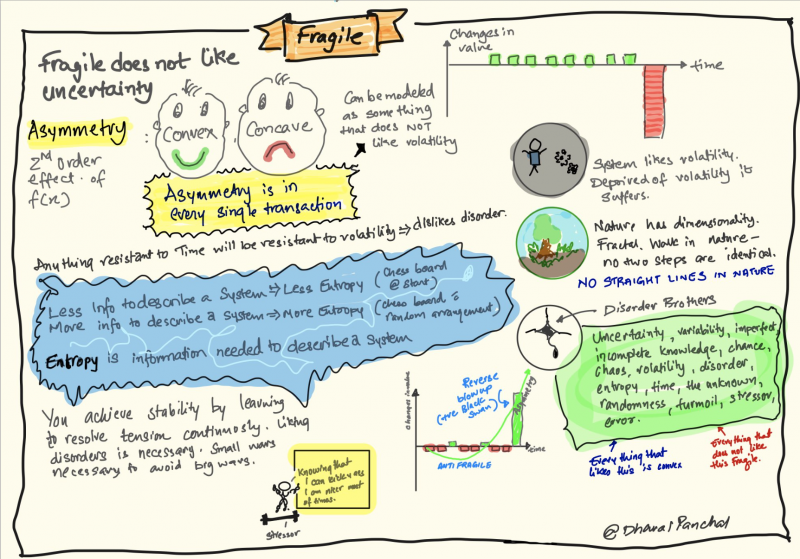 Fragile
Fragile does not like
uncertainty
Asymmetry :
2nd order
effect of
f(x)
Convex
Concave
Can be modeled
as something
that does NOT
like volatility
Asymmetry is in
every single transaction
Changes in
value
time
System likes volatility.
Deprived of volatility it
suffers.
Nature has dimensionality.
Fractal. Walk in nature –
no two steps are identical.
NO STRAIGHT LINES IN NATURE
Anything resistant to Time will be resistant to volatility ⇒ dislikes disorder.
Less Info to describe a System ⇒ Less Entropy (Chess board @ Start)
More info to describe a System ⇒ More Entropy (chess board random arrangement)
Entropy is information needed to describe a System
Disorder Brothers
Uncertainty, variability, imperfect
incomplete knowledge, chance,
chaos, volatility, disorder,
entropy, time, the unknown,
randomness, turmoil, stressor,
error.
Everything that
likes this is convex
Everything that
does not like
this fragile.
You achieve stability by learning
to resolve tension continously. Liking
disorders is necessary. Small wars
necessary to avoid big wars.
Knowing that
I can
I am nicer most
of times.
stressor
Changes in value
Reverse
blowup
(+ve Black
Swan)
Asymmetry
time
ANTI FRAGILE
@DhavalPanchal